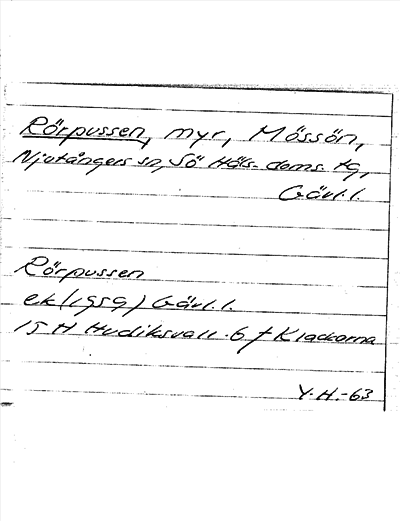 Rörpussen, myr, Mössön,
Njutångers sn, Sö Häls. doms. tg,
Gävl.l.
Rörpussen
ek (1959) Gävl.l.
15 H Hudiksvall 6 f Klackarna
Y.H.-63